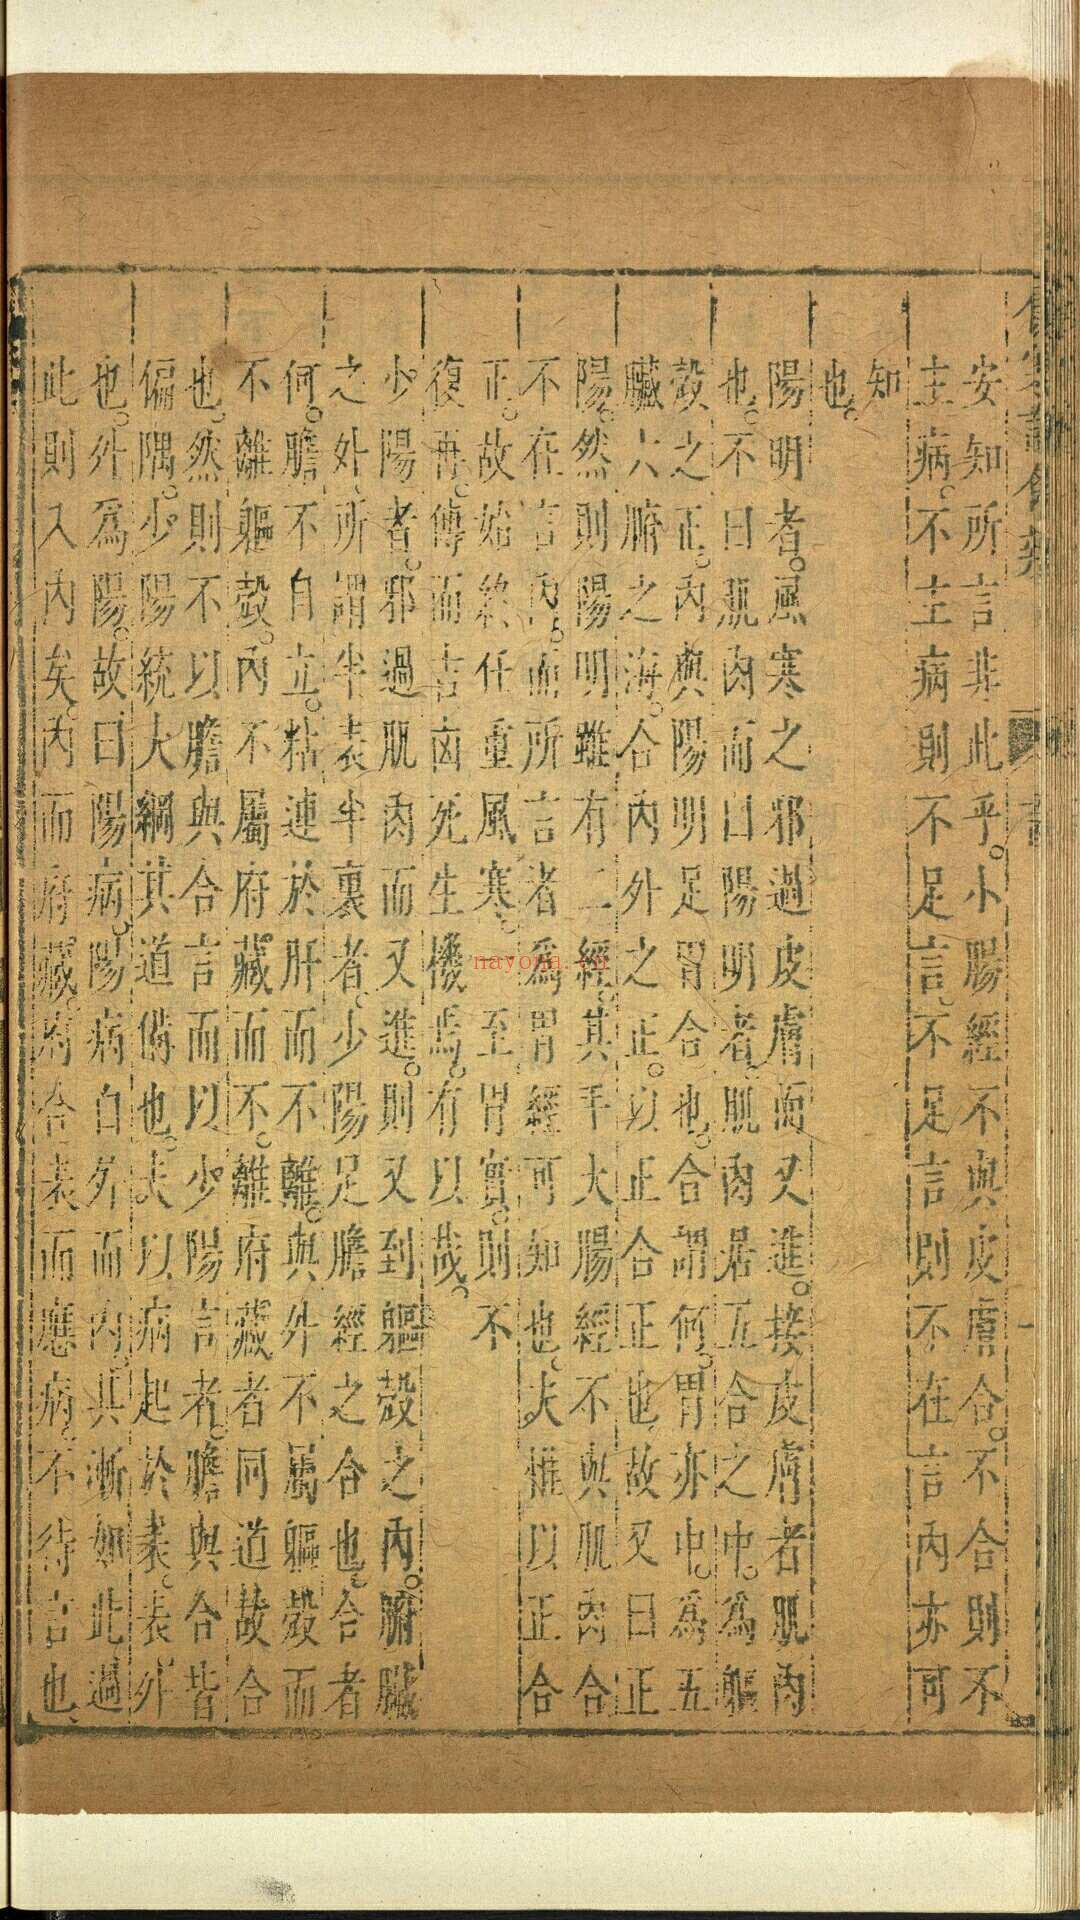 安知所言非此乎。小腸經不與皮膚合。不合則不
主病。不主病則不足言。不足言則不在言内亦可
知
也。
陽明者。風寒之邪過皮膚而又進。接皮膚者肌肉
也。不曰肌肉而曰陽明者。肌肉居五合之中。為軀
殼之正。内與陽明足胃合也。合謂何。胃亦中。為五
臓六腑之海。合内外之正。以正合正也故又曰正
陽。然則陽明雖有二經。其手大腸經不與肌肉合
不在言内。而所言者為胃經可知也。夫惟以正合
正。故始終任重風寒。至胃實。則不
復再。傳而吉凶死生機焉。有以哉。
少陽者。邪過肌肉而又進。則又到軀殼之内。腑臓
之外。所謂半表半裏者。少陽足膽經之合也。合者
何。膽不自立。粘連於肝而不離。與外不屬軀殼而
不離軀殼。内不屬府藏而不。離府藏者同道故合
也。然則不以膽與合言而以少陽言者。膽與合皆
偏隅。少陽統大綱其道備也。夫以病起於表。表外
也。外爲陽。故曰陽病。陽病自外而内。其漸如此過
此則入内矣。内而府藏。府合表而應病。不待言也
nayona.cn